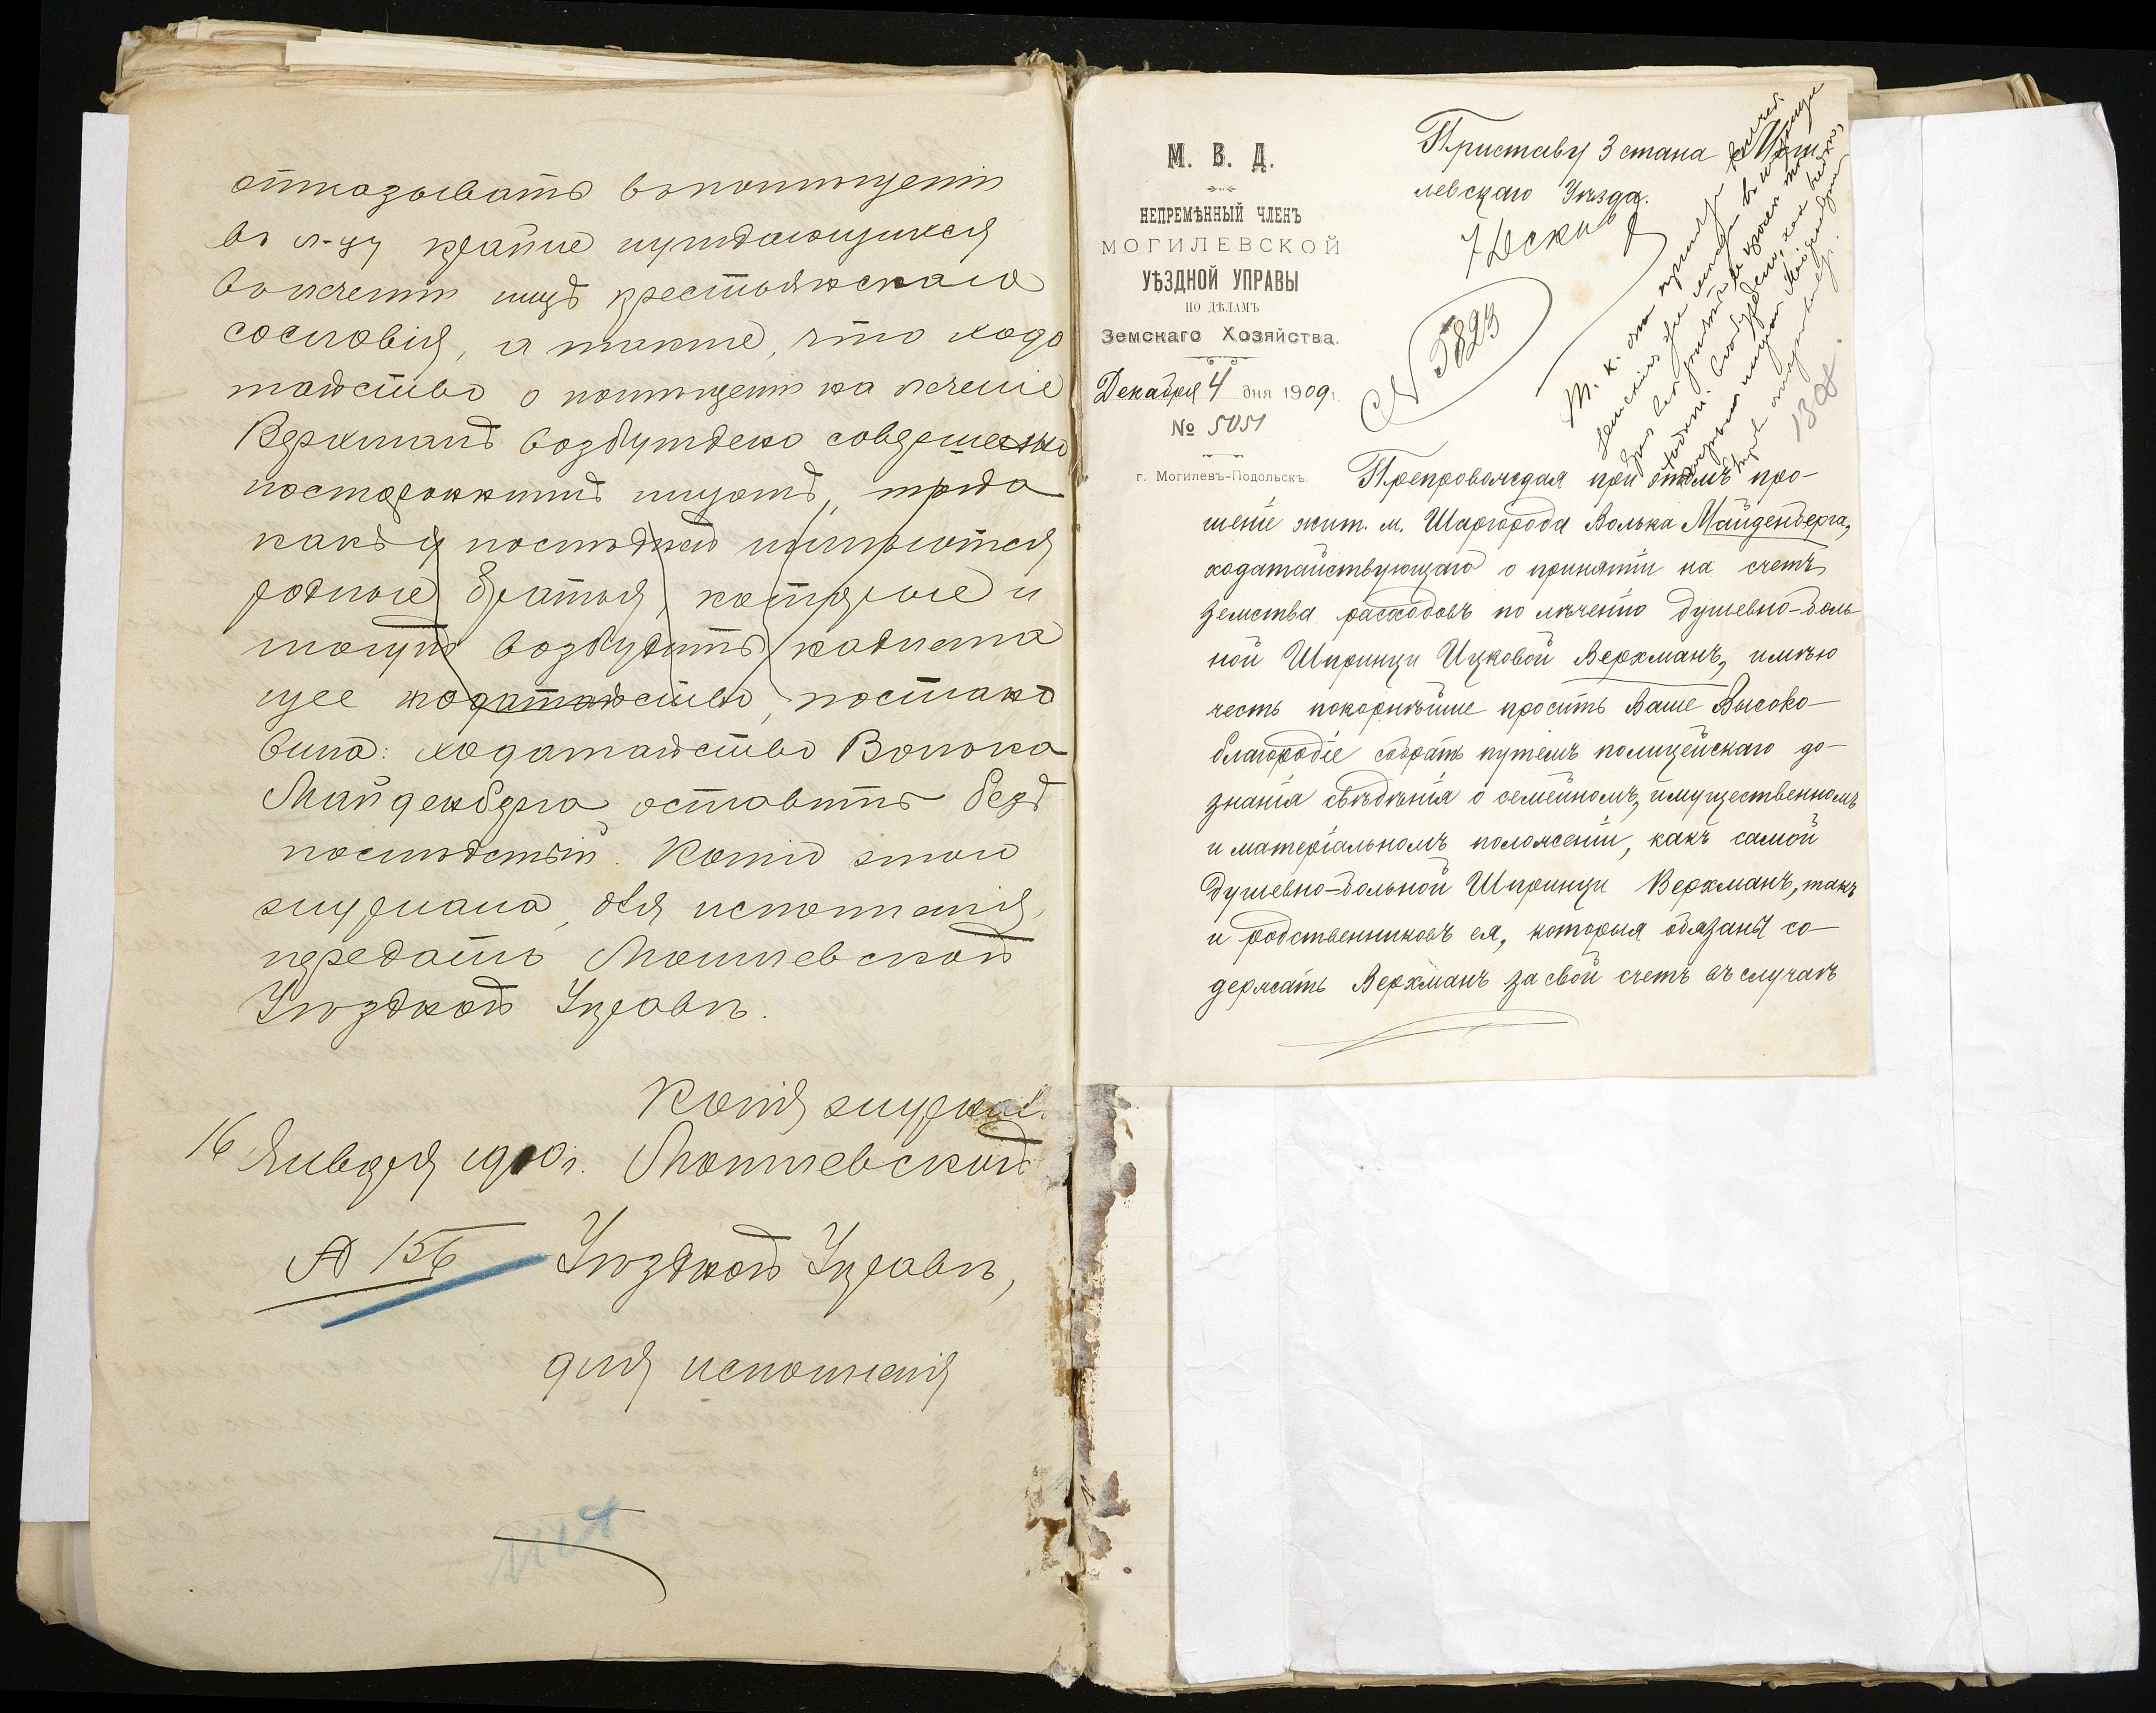 отказывать в помѣщеніи
въ л-цу крайне нуждающихся
въ лѣченіи лицъ крестьянскаго
сословія, а также, что хода
тайство о помѣщеніи на лѣченіе
Верхманъ возбуждено совершенно
постороннимъ лицомъ, тогда
какъ у послѣдней имѣются
родные братья, которые и
могутъ возбудить надлежа
щее ходатайство, постано
вила: ходатайство Волька
Майденберга оставить безъ
послѣдствій. Копію этого
журнала, для исполненія,
передать Могилевской
Уѣздной Управѣ.
Копія журнал.
16 Января 1910 г. Могилевской
№ 156 Уѣздной Управѣ,
для исполненія
М. В. Д.
НЕПРЕМѢННЫЙ ЧЛЕНЪ
МОГИЛЕВСКОЙ
УѢЗДНОЙ УПРАВЫ
ПО ДѢЛАМЪ
Земскаго Хозяйства.
Декабря 4 дня 1909 г.
№ 5051
г. Могилевъ-Подольскъ.
Приставу 3 стана Моги
левскаго Уѣзда.
7 Декабр
Препровождая при этомъ про-
шеніе жит. м. Шаргорода Волька Майденберга,
ходатайствующаго о принятіи на счетъ
земства расходовъ по лѣченію душевно-боль
ной Шпринци Ицковой Верхманъ, имѣю
честь покорнѣйше просить Ваше Высоко-
благородіе собрать путемъ полицейскаго до-
знанія свѣдѣнія о семейномъ, имущественномъ
и матеріальномъ положеніи, какъ самой
душевно-больной Шпринци Верхманъ, такъ
и родственниковъ ея, которыя обязаны со-
держать Верхманъ за свой счетъ въ случаѣ